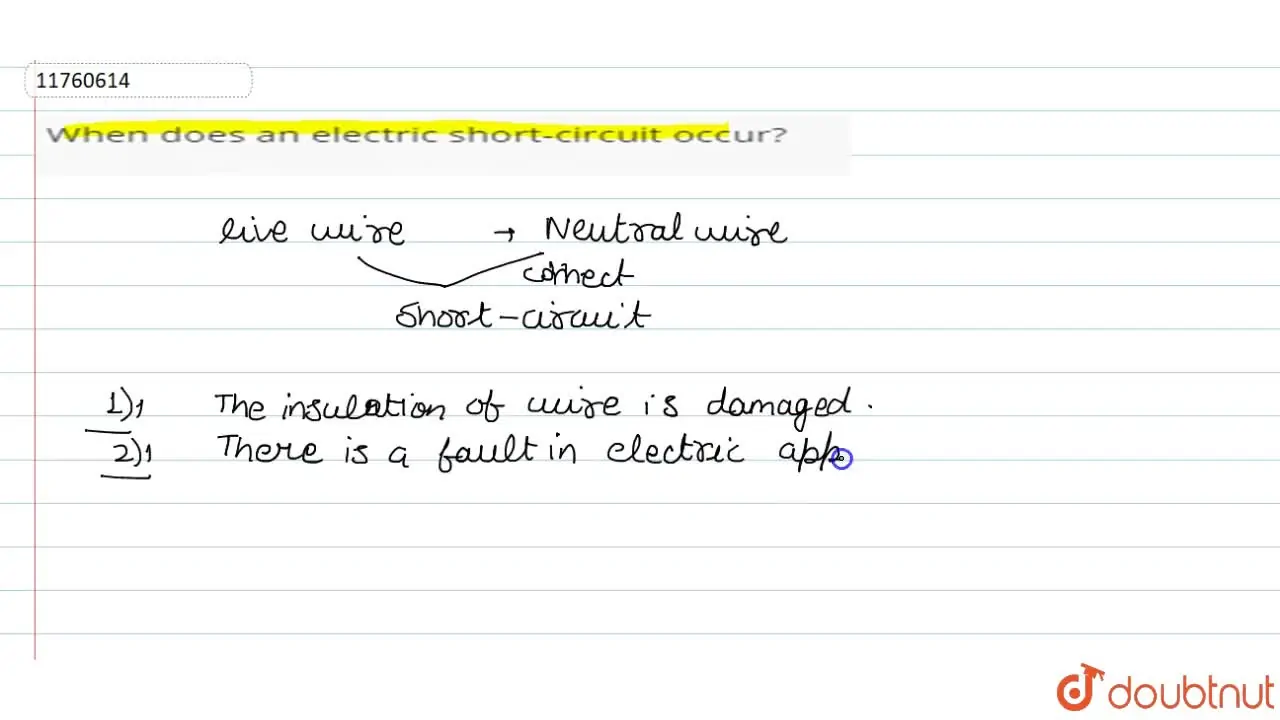 11760614
When does an electric short-circuit occur?
live wire → Neutral wire
connect
Short-circuit
1) The insulation of wire is damaged.
2) There is a fault in electric app
doubtnut